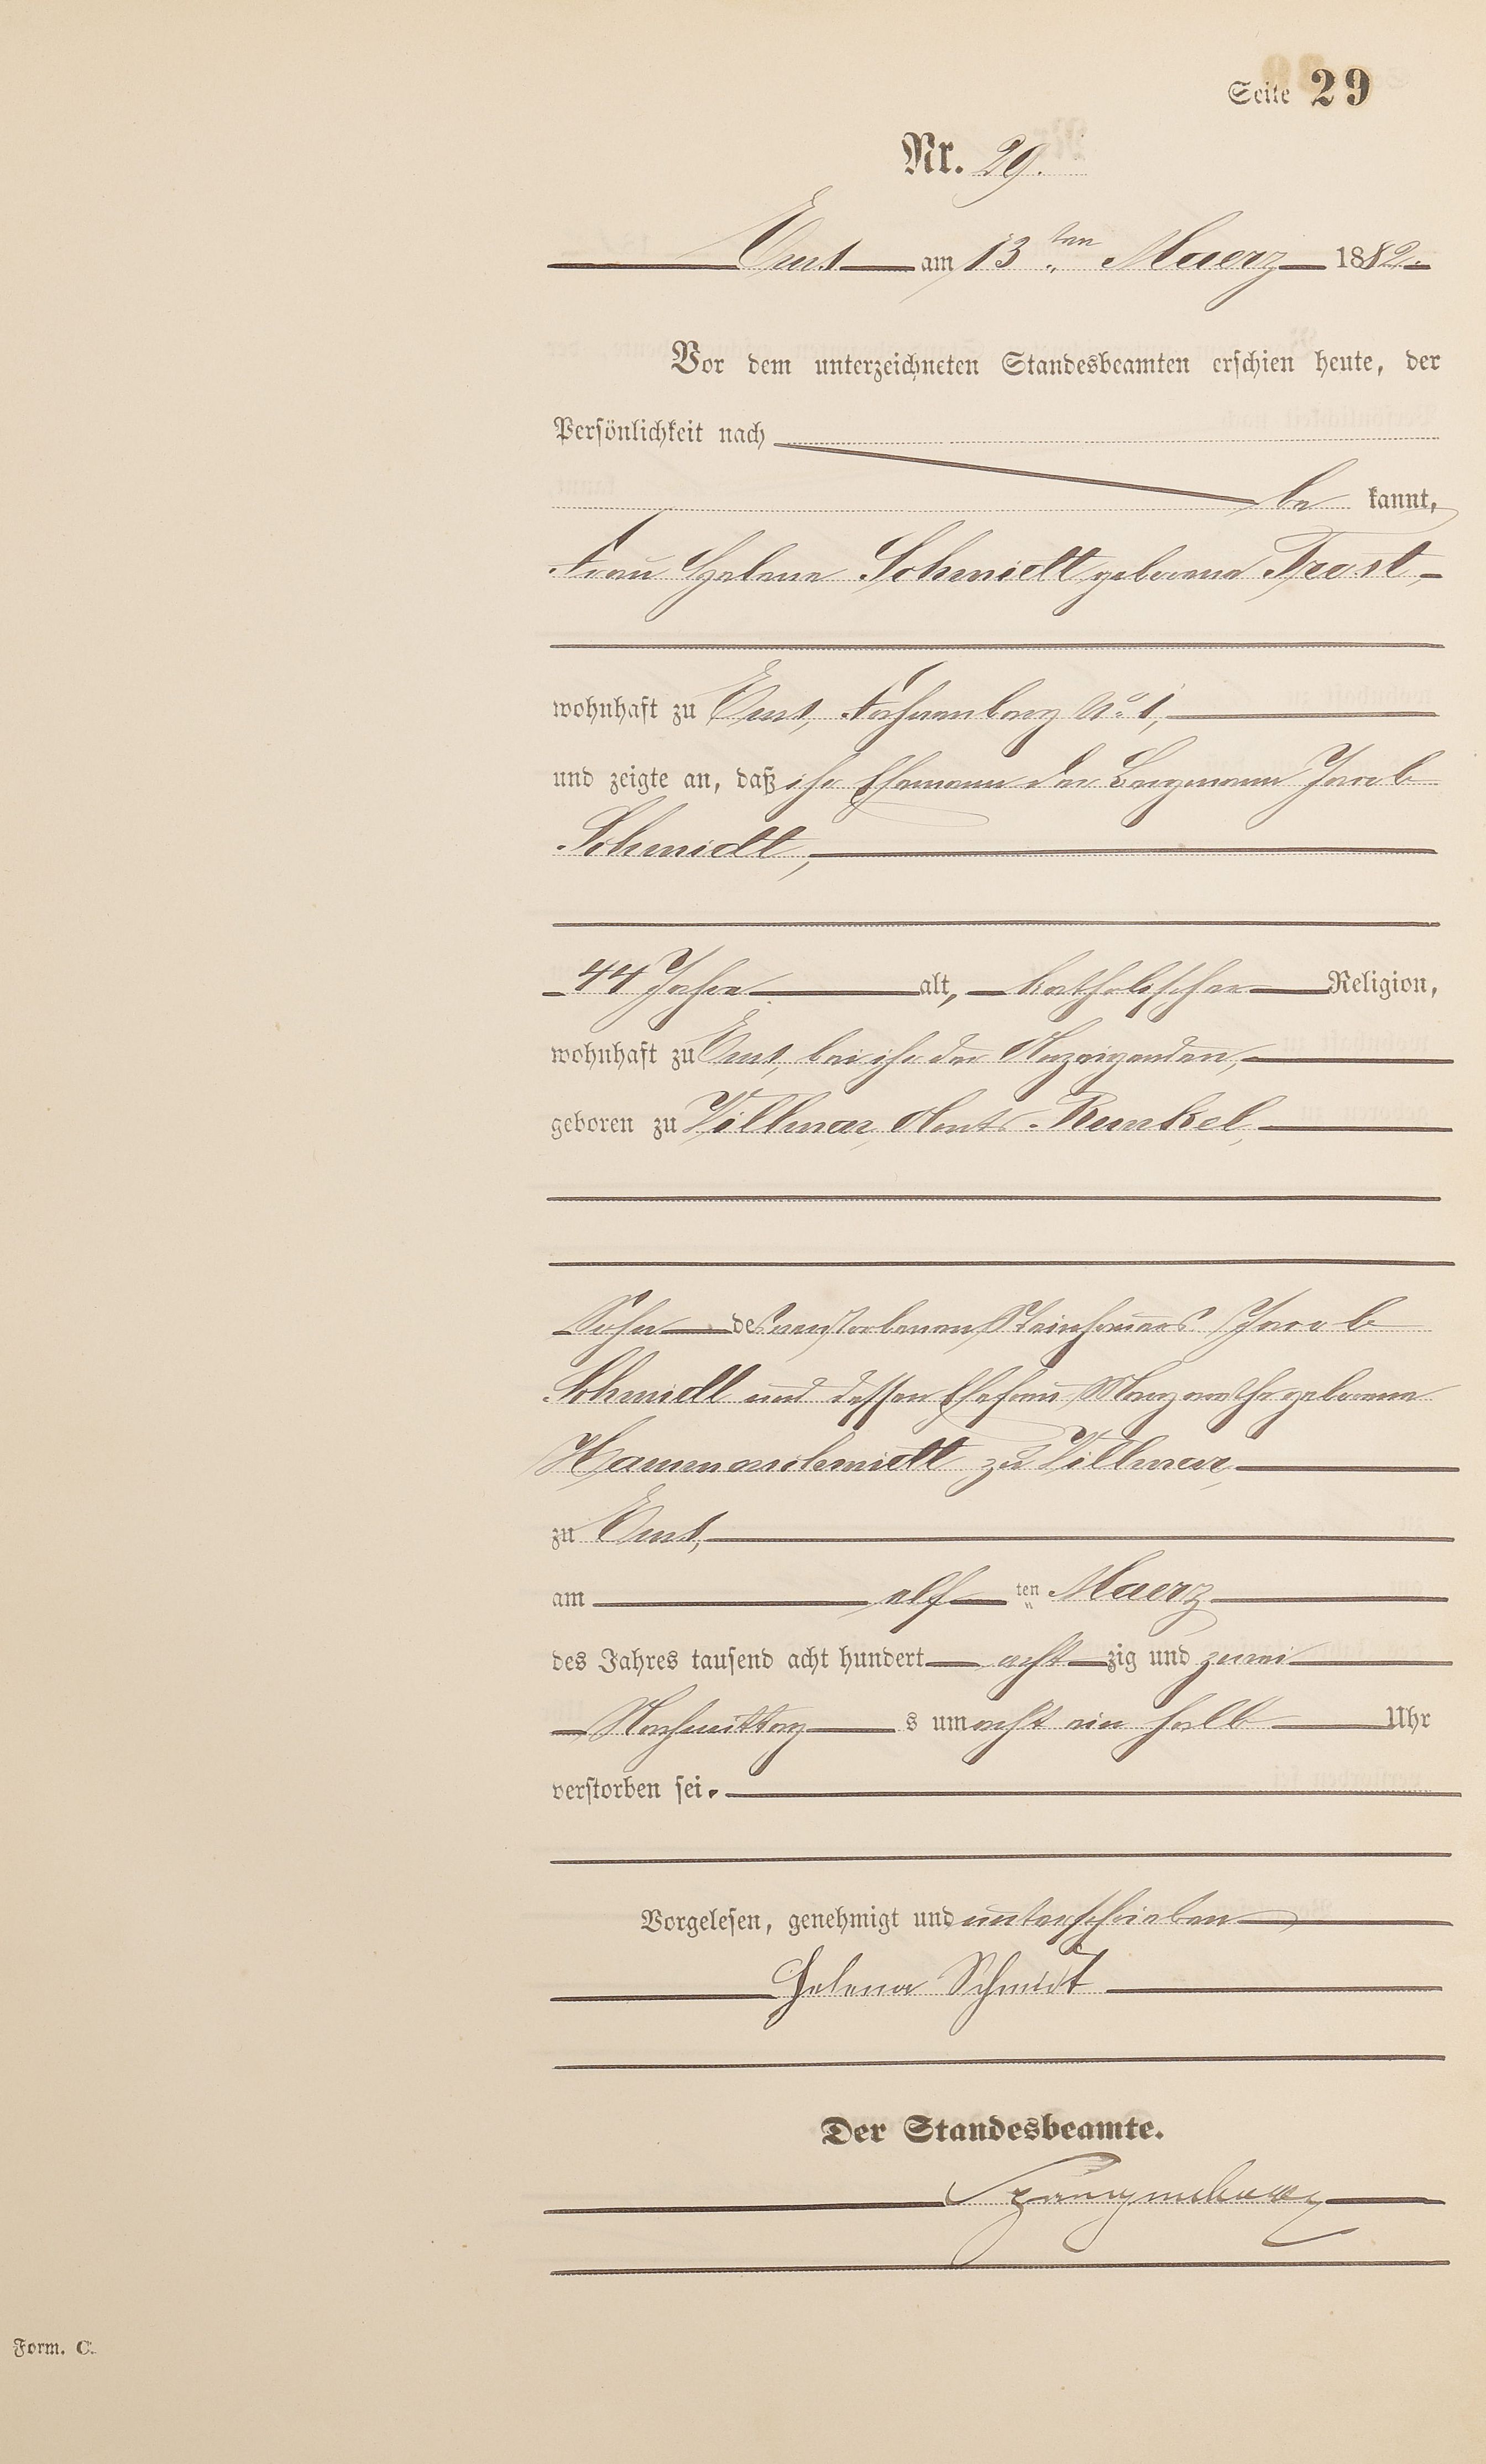 Seite 29
Nr. 29.
Ems am 13ten Maerz 1882
Vor dem unterzeichneten Standesbeamten erschien heute, der
Persönlichkeit nach
be kannt,
Frau Helene Schmidt geborene Trost
wohnhaft zu Ems, No 1,
und zeigte an, daß ihr Ehemann der Bergmann Jacob
Schmidt,
44 Jahre alt, katholischer Religion,
wohnhaft zu Ems, bei ihr der Anzeigenden,
geboren zu Villmar, Amts Runkel,
Sohn des verstorbenen Steinhauers Jacob
Schmidt und dessen Ehefrau Margarethe geborene
Hammerschmidt zu Villmar,
zu Ems,
am elf ten Maerz
des Jahres tausend acht hundert acht zig und zwei
Nachmittag s um acht ein halb Uhr
verstorben sei.
Vorgelesen, genehmigt und unterschrieben
Helena Schmidt
Der Standesbeamte.
Form. C.